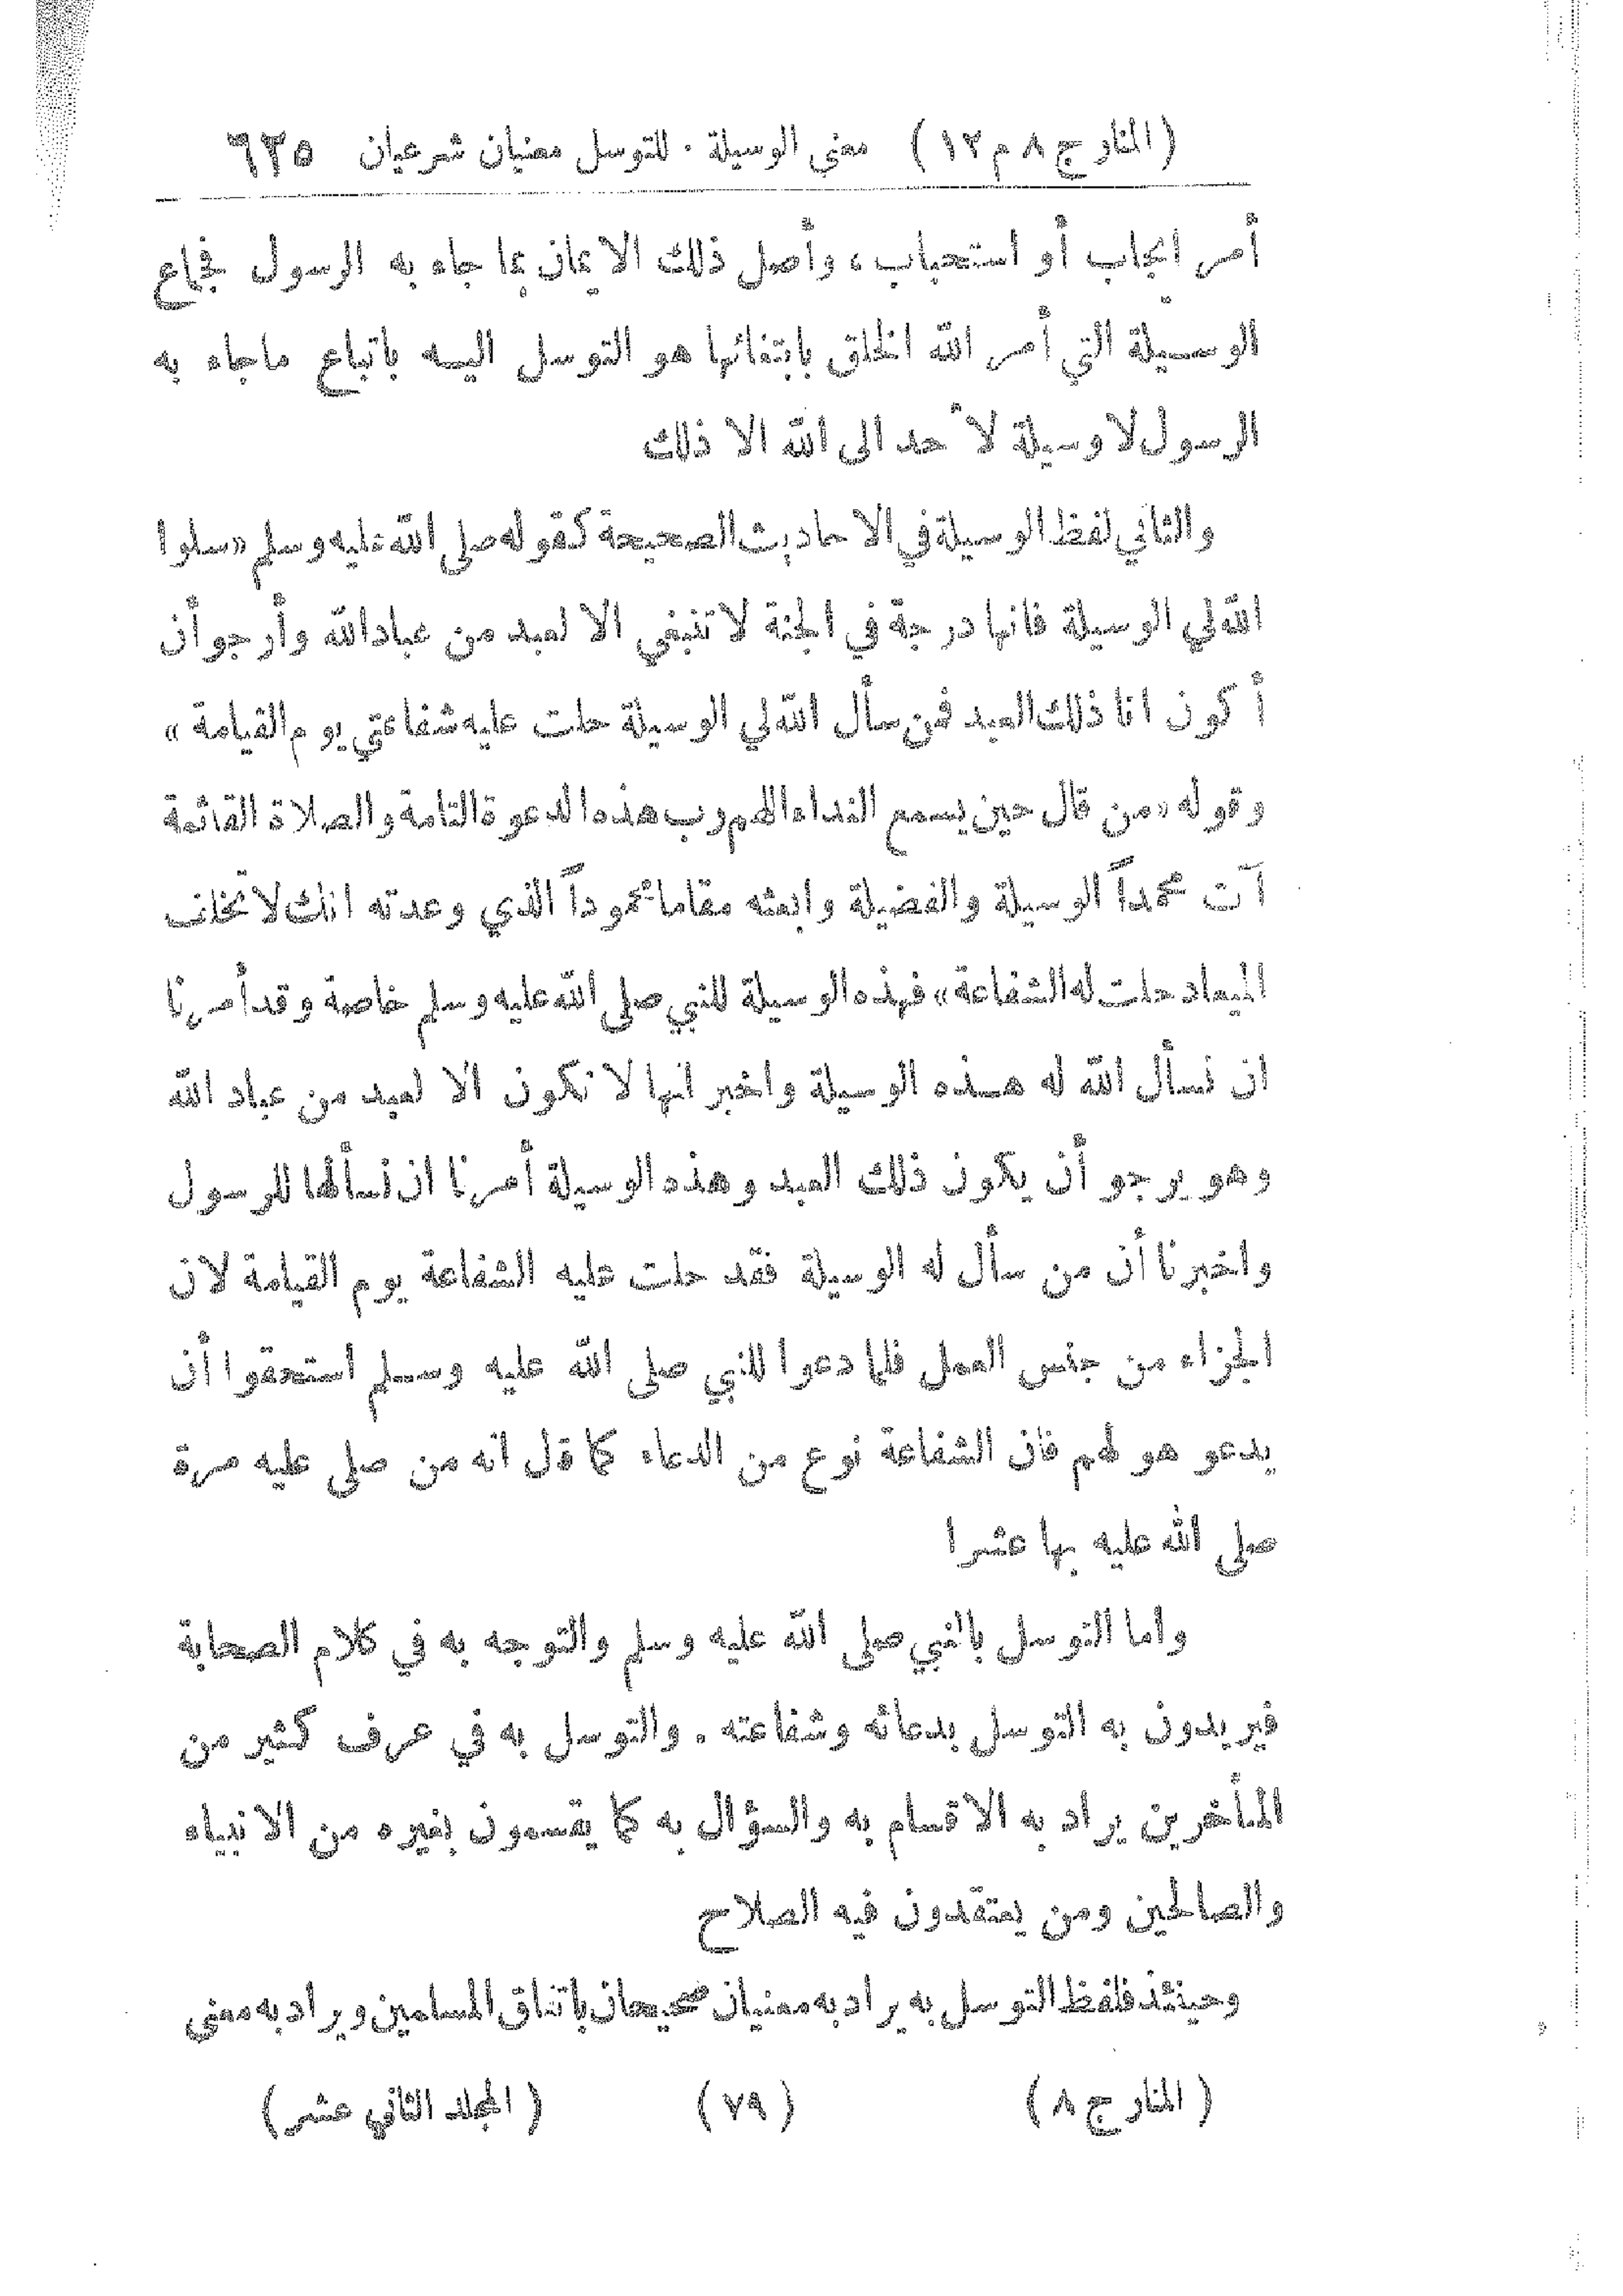 (المنار ج ٨ م ١٢) معنى الوسيلة . للتوسل معنيان شرعيان ٦٢٥
أمر ايجاب أو استحباب، وأصل ذلك الايمان بما جاء به الرسول فجماع
الوسيلة التي أمر الله الخلق بابتغائها هو التوسل اليه باتباع ماجاء به
الرسول لا وسيلة لأحد الى الله الا ذلك
والثاني لفظ الوسيلة في الاحاديث الصحيحة كقوله صلى الله عليه وسلم «سلوا
الله لي الوسيلة فانها درجة في الجنة لا تنبغي الا لعبد من عباد الله وأرجو أن
أكون انا ذلك العبد فمن سأل الله لي الوسيلة حلت عليه شفاعتي يوم القيامة»
وقوله «من قال حين يسمع النداء اللهم رب هذه الدعوة التامة والصلاة القائمة
آت محمداً الوسيلة والفضيلة وابعثه مقاما محموداً الذي وعدته انك لا تخلف
الميعاد حلت له الشفاعة» فهذه الوسيلة للنبي صلى الله عليه وسلم خاصة وقد أمرنا
ان نسأل الله له هذه الوسيلة واخبر انها لا تكون الا لعبد من عباد الله
وهو يرجو أن يكون ذلك العبد وهذه الوسيلة أمرنا ان نسألها للرسول
واخبرنا أن من سأل له الوسيلة فقد حلت عليه الشفاعة يوم القيامة لان
الجزاء من جنس العمل فلما دعوا للنبي صلى الله عليه وسلم استحقوا أن
يدعو هو لهم فان الشفاعة نوع من الدعاء كما قال انه من صلى عليه مرة
صلى الله عليه بها عشرا
واما التوسل بالنبي صلى الله عليه وسلم والتوجه به في كلام الصحابة
فيريدون به التوسل بدعائه وشفاعته . والتوسل به في عرف كثير من
المتأخرين يراد به الاقسام به والسؤال به كما يقسمون بغيره من الانبياء
والصالحين ومن يعتقدون فيه الصلاح
وحينئذ فلفظ التوسل به يراد به معنيان صحيحان باتفاق المسلمين ويراد به معنى
(المنار ج ٨) (٧٩) (المجلد الثاني عشر)